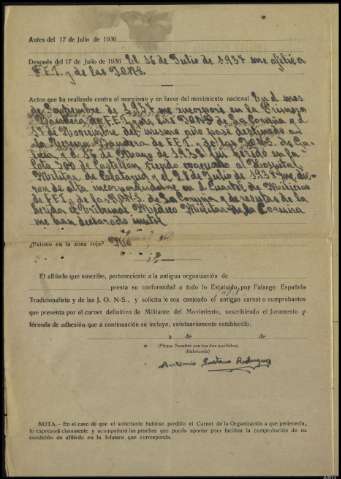 Antes del 17 de Julio de 1936
Después del 17 de Julio de 1936 El 16 de Julio de 1937 me afilié a
F.E.T. y de las J.O.N.S.
Actos que ha realizado contra el marxismo y en favor del movimiento nacional En el mes
de Septiembre de 1937 me incorporé en la Primera
Bandera de F.E.T. y de las JONS de La Coruña y el
de Noviembre del mismo año pasé destinado a
la Tercera Bandera de F.E.T. y de las J.O.N.S. de Ga-
licia y el 16 de Marzo de 1938 fui herido en la
Cota de Castellon siendo al Hospital
Militar de y el 21 de Julio de 1938 me die-
ron de alta incorporandome en el Cuartel de Milicias
de F.E.T. y de las J.O.N.S. de La Coruña y de resultas de la
herida el Tribunal Médico Militar de la Coruña
me han declarado inutil
¿Estuvo en la zona roja? No
El afiliado que suscribe, perteneciente a la antigua organización de
presta su conformidad a todo lo Estatuído por Falange Española
Tradicionalista y de las J. O. N-S., y solicita le sea canjeado el antiguo carnet o comprobantes
que presenta por el carnet definitivo de Militante del Movimiento, suscribiendo el Juramento y
fórmula de adhesión que a continuación se incluye, estatutariamente establecido.
a de de
(Firma: Nombre con los dos apellidos.
Rubricado)
Antonio Rodriguez
NOTA.- En el caso de que el solicitante hubiese perdido el Carnet de la Organización a que pertenecía,
lo expresará claramente y acompañará las pruebas que pueda aportar para facilitar la comprobación de su
condición de afiliado en la Jefatura que corresponda.